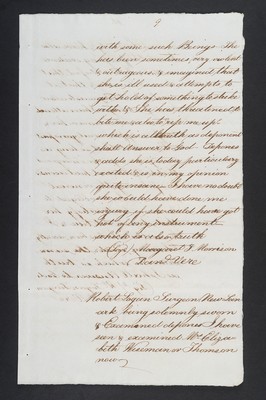 9
with some such Beings She
has been sometimes very violent
& outrageous & imagined that
she is ill used & attempts to
get hold of something to strike
with & She has threatened to
bite me also to rip me up.
which is all truth as deponent
shall answer to God. Depones
& adds she is today particularly
excited & is in my opinion
quite insane I have no doubt
she would have done me
injury if she could have got
hold of any instrument
which is also truth
Margaret Morrison
Robert Logan Surgeon New Lan
ark being solemnly sworn
& Examined depones I have
seen & examined Mrs Eliza
beth Wiseman or Thomson
now